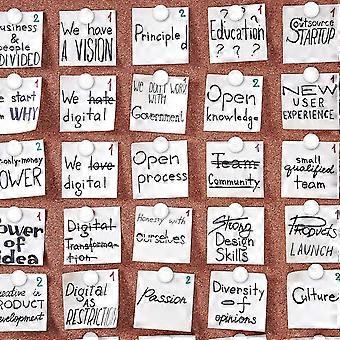 1
business &
people
DIVIDED
1
We have
A VISION
2
Principled
1
Education
? ? ?
1
Outsource
STARTUP
1
We start
from WHY
1
We hate
digital
1
We don't work
with
Government
2
Open
knowledge
2
NEW
USER
EXPERIENCE
2
only-money
POWER
2
We love
digital
1
Open
process
2
Team
Community
1
small
qualified
team
1
Power of
idea
1
Digital
Transforma-
tion
1
Honesty with
ourselves
2
Strong
Design
Skills
1
Products
LAUNCH
2
Creative in
PRODUCT
development
1
Digital
AS
RESTRICTION
2
Passion
2
Diversity
of
opinions
2
Culture